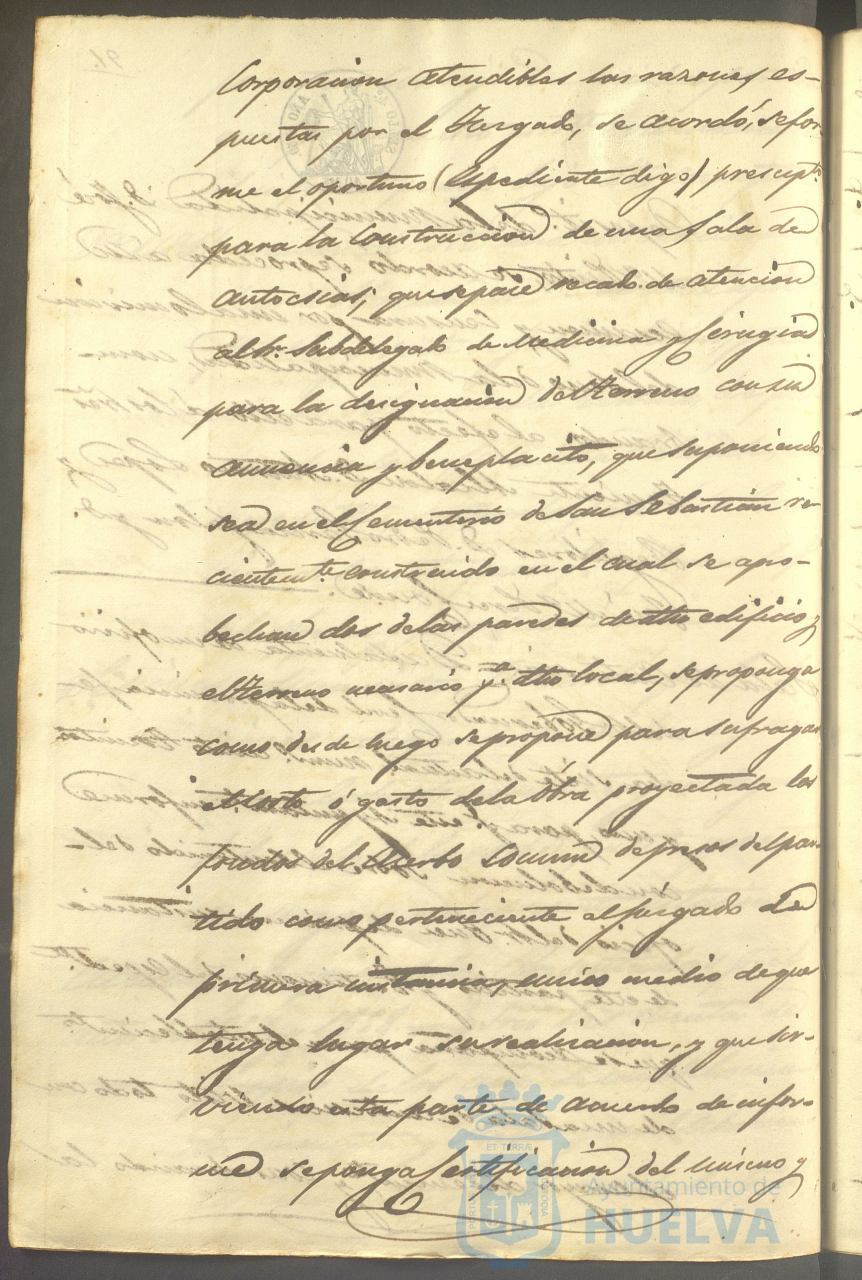 Corporacion atendibles las razones es-
puestas por el Juzgado, se acordó, se for-
me el oportuno (Espediente digo) presupto.
para la Construccion de una Sala de
autocsias, que se pase recado de atencion
al Sr. Subdelegado de Medicina y Cirugia
para la designacion del terreno con su
anuencia y beneplacito, que suponiendo
sea en el Cementerio de San Sebastian re-
cientemte. construido en el cual se apro-
bechan dos de las paredes de dho edificio, y
el terreno necesario pa. dho local, se proponga
como desde luego se propone para sufragar
el costo ó gasto de la Obra proyectada los
fondos del Acerbo Comun de presos del par-
tido como perteneciente al Juzgado de
primera instancia, unico medio de que
tenga lugar su realizacion, y que sir-
viendo esta parte de acuerdo de infor-
me se ponga Certificacion del mismo y
ET TERRÆ
CUSTODIA
Ayuntamiento de
HUELVA